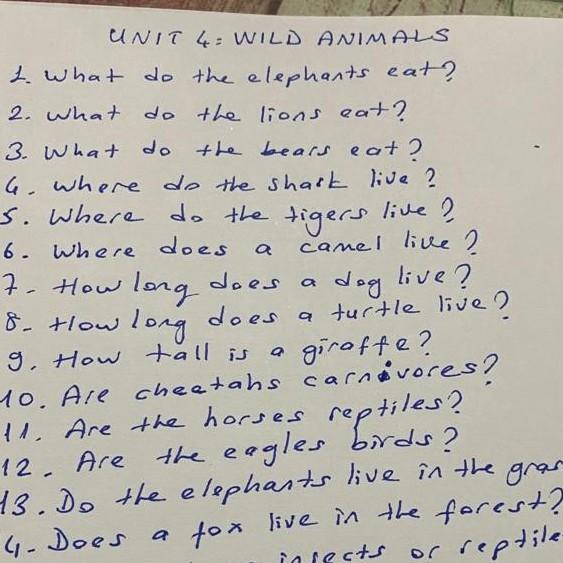 UNIT 4: WILD ANIMALS
1. What do the elephants eat?
2. what do the lions eat?
3. What do the bears eat?
4. where do the shark live?
5. Where do the tigers live?
6. Where does a camel live?
7- How long does a dog live?
8- How long does a turtle live?
9. How tall is a giraffe?
10. Are cheetahs carnivores?
11. Are the horses reptiles?
12. Are the eagles birds?
13. Do the elephants live in the gras
4- Does a fox live in the forest?
insects or reptile